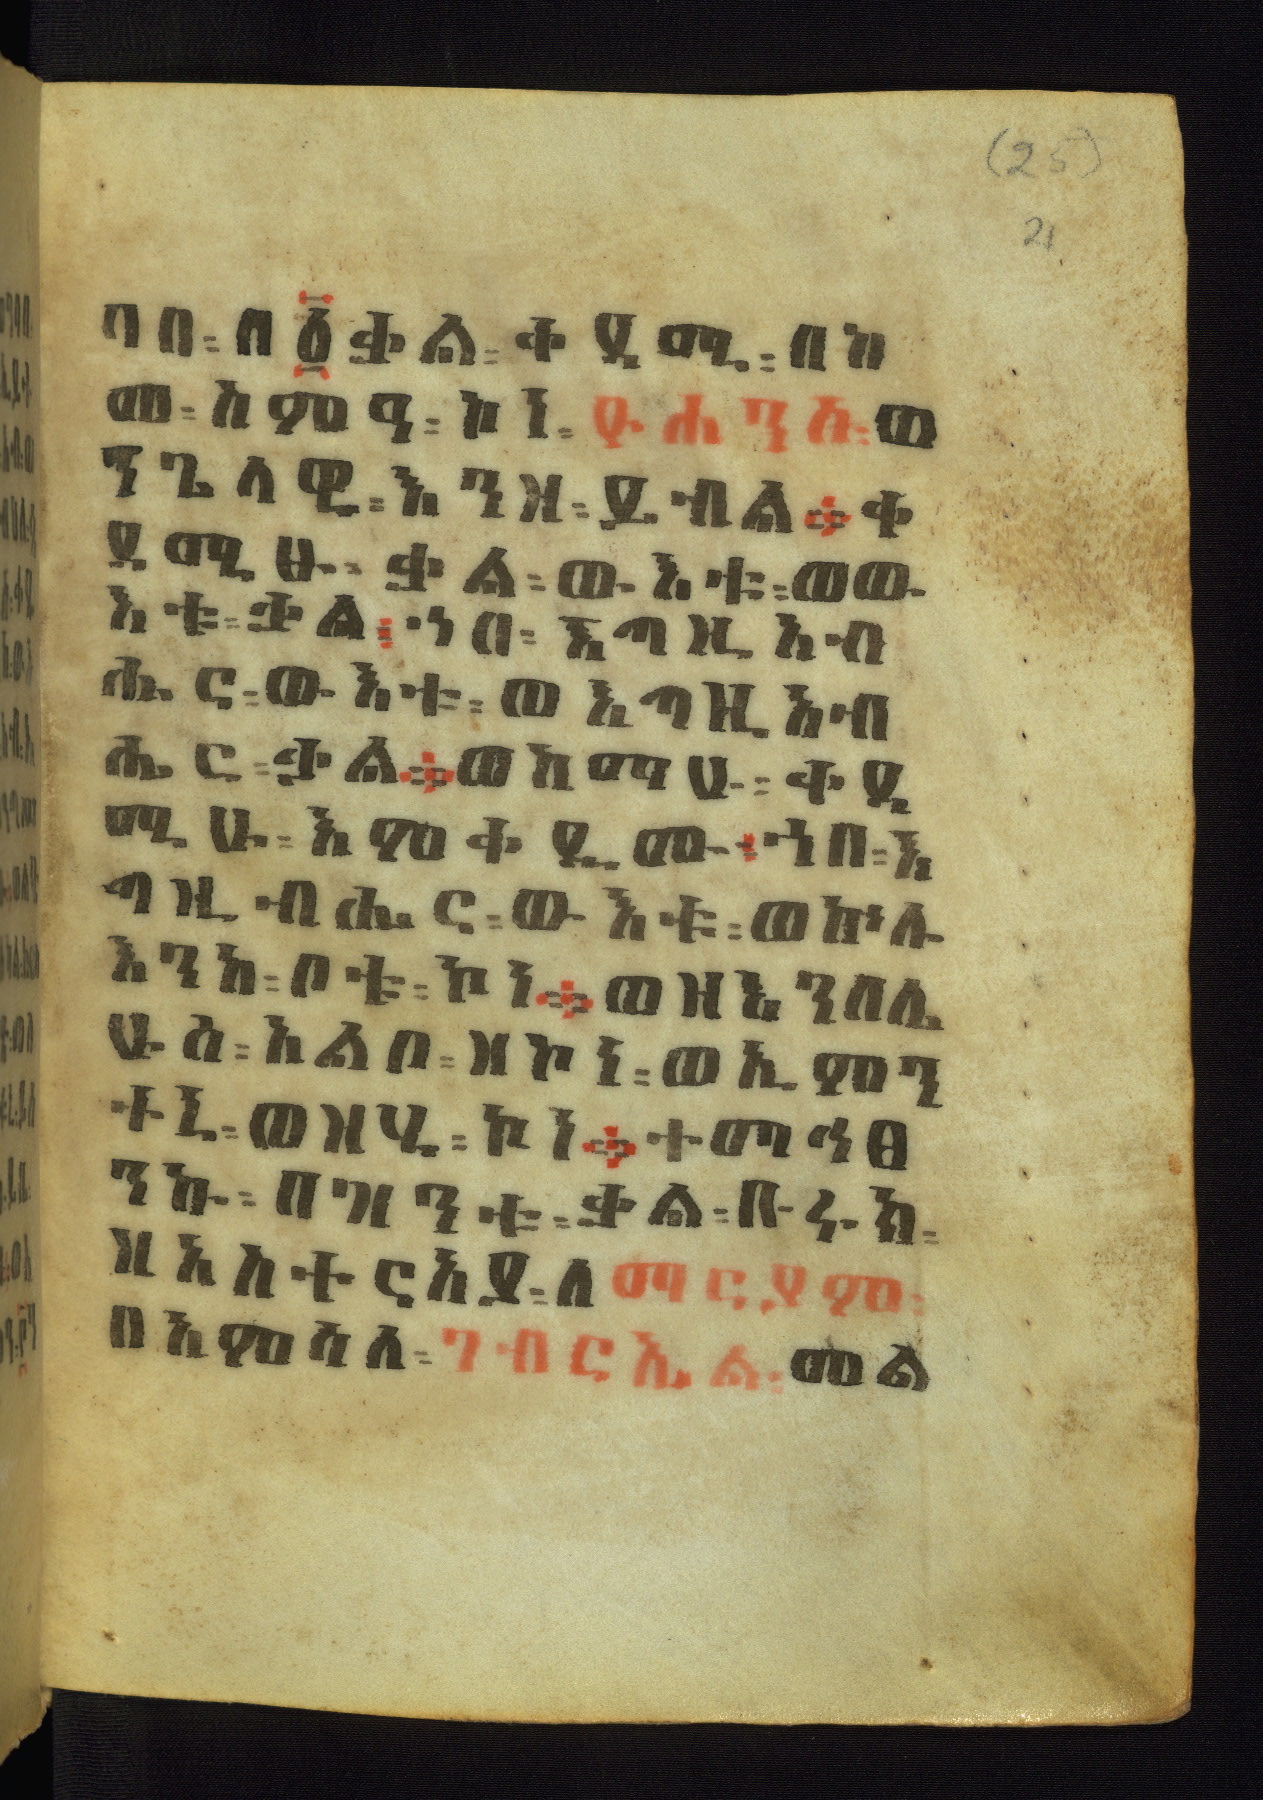 (25)
21
ባበ፡ለ፩ቃል፡ቀዳሚ፡በከ
መ፡አምዓ፡ኮነ፡ዮሐንስ፡ወ
ንጌላዊ፡እንዘ፡ይብል፨ቀ
ዳሚሁ፡ቃል፡ውእቱ፡ወው
እቱ፡ቃል፡ኀበ፡እግዚአብ
ሔር፡ውእቱ፡ወእግዚአብ
ሔር፡ቃል፨ወከማሁ፡ቀዳ
ሚሁ፡እምቀዲሙ፡ኀበ፡እ
ግዚብሔር፡ውእቱ፡ወኵሉ
እንከ፡ቦቱ፡ኮነ፨ወዘእንበሌ
ሁሰ፡አልቦ፡ዘኮነ፡ወኢምን
ተኒ፡ወዝሂ፡ኮነ፨ተማኅፀ
ንኩ፡በዝንቱ፡ቃል፡ቡሩክ፡
ዘአስተርአያ፡ለማርያም፡
በአምሳለ፡ገብርኤል፡መል